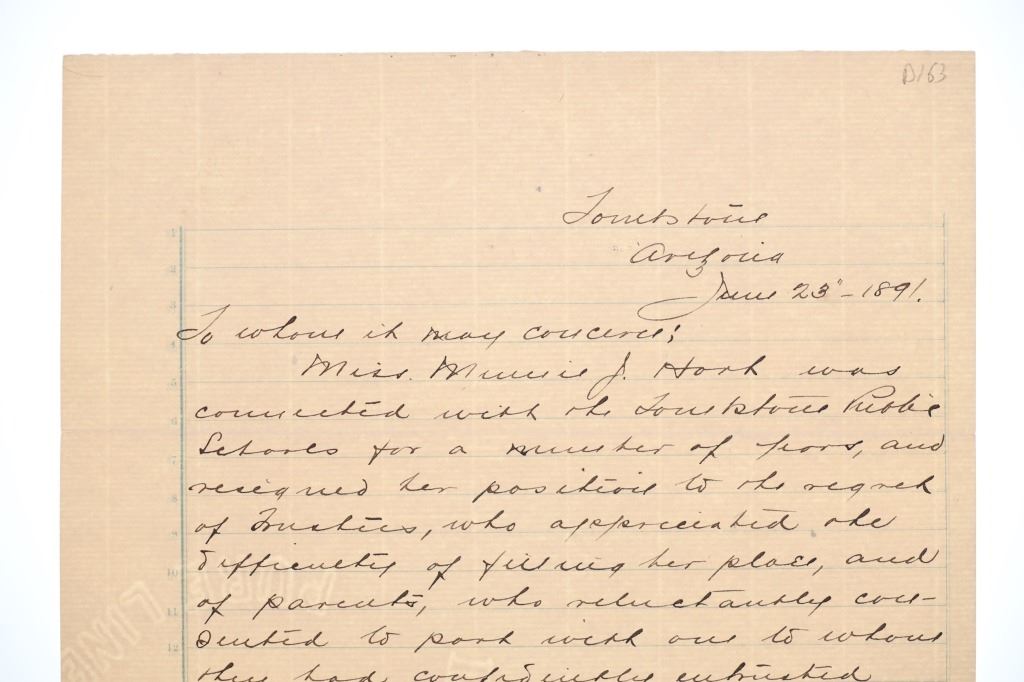 D163
Tombstone
Arizona
June 23" - 1891.
To whom it may concern:
Miss. Minnie J. Hart was
connected with the Tombstone Public
Schools for a number of years, and
resigned her position to the regret
of Trustees, who appreciated the
difficulty of filling her place, and
of parents, who reluctantly con-
sented to part with one to whom
they had confidently entrusted
1
2
3
4
5
6
7
8
9
10
11
12